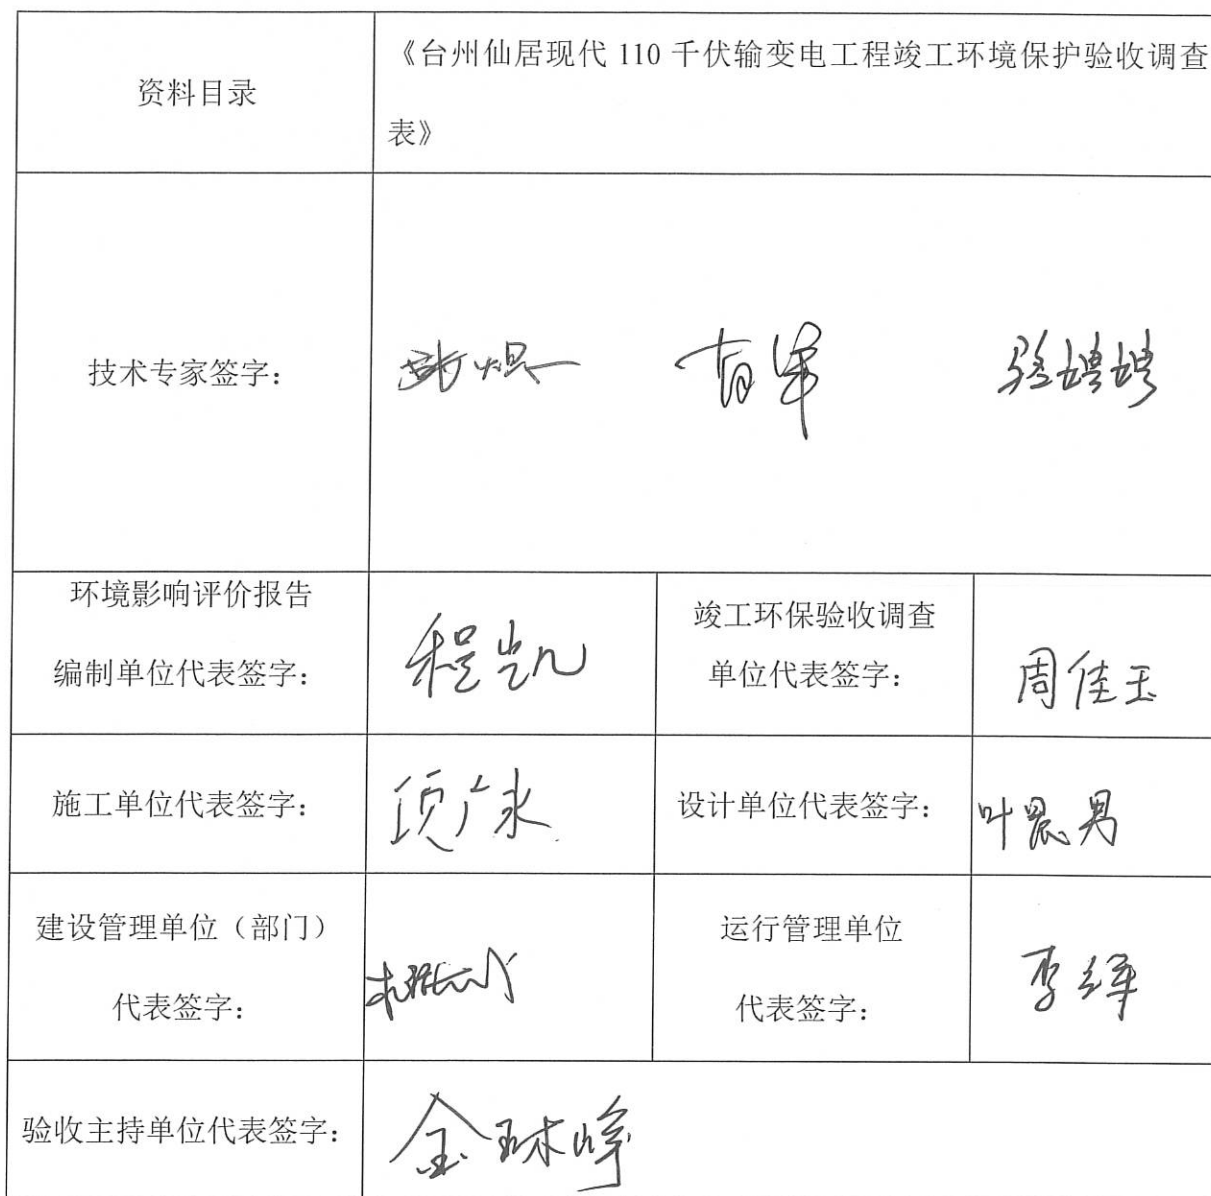 资料目录
《台州仙居现代 110 千伏输变电工程竣工环境保护验收调查
表》
技术专家签字：
骆娉娉
环境影响评价报告
编制单位代表签字：
程凯
竣工环保验收调查
单位代表签字：
周佳玉
施工单位代表签字：
项广永
设计单位代表签字：
叶晨男
建设管理单位（部门）
代表签字：
运行管理单位
代表签字：
李绎
验收主持单位代表签字：
金琳峰